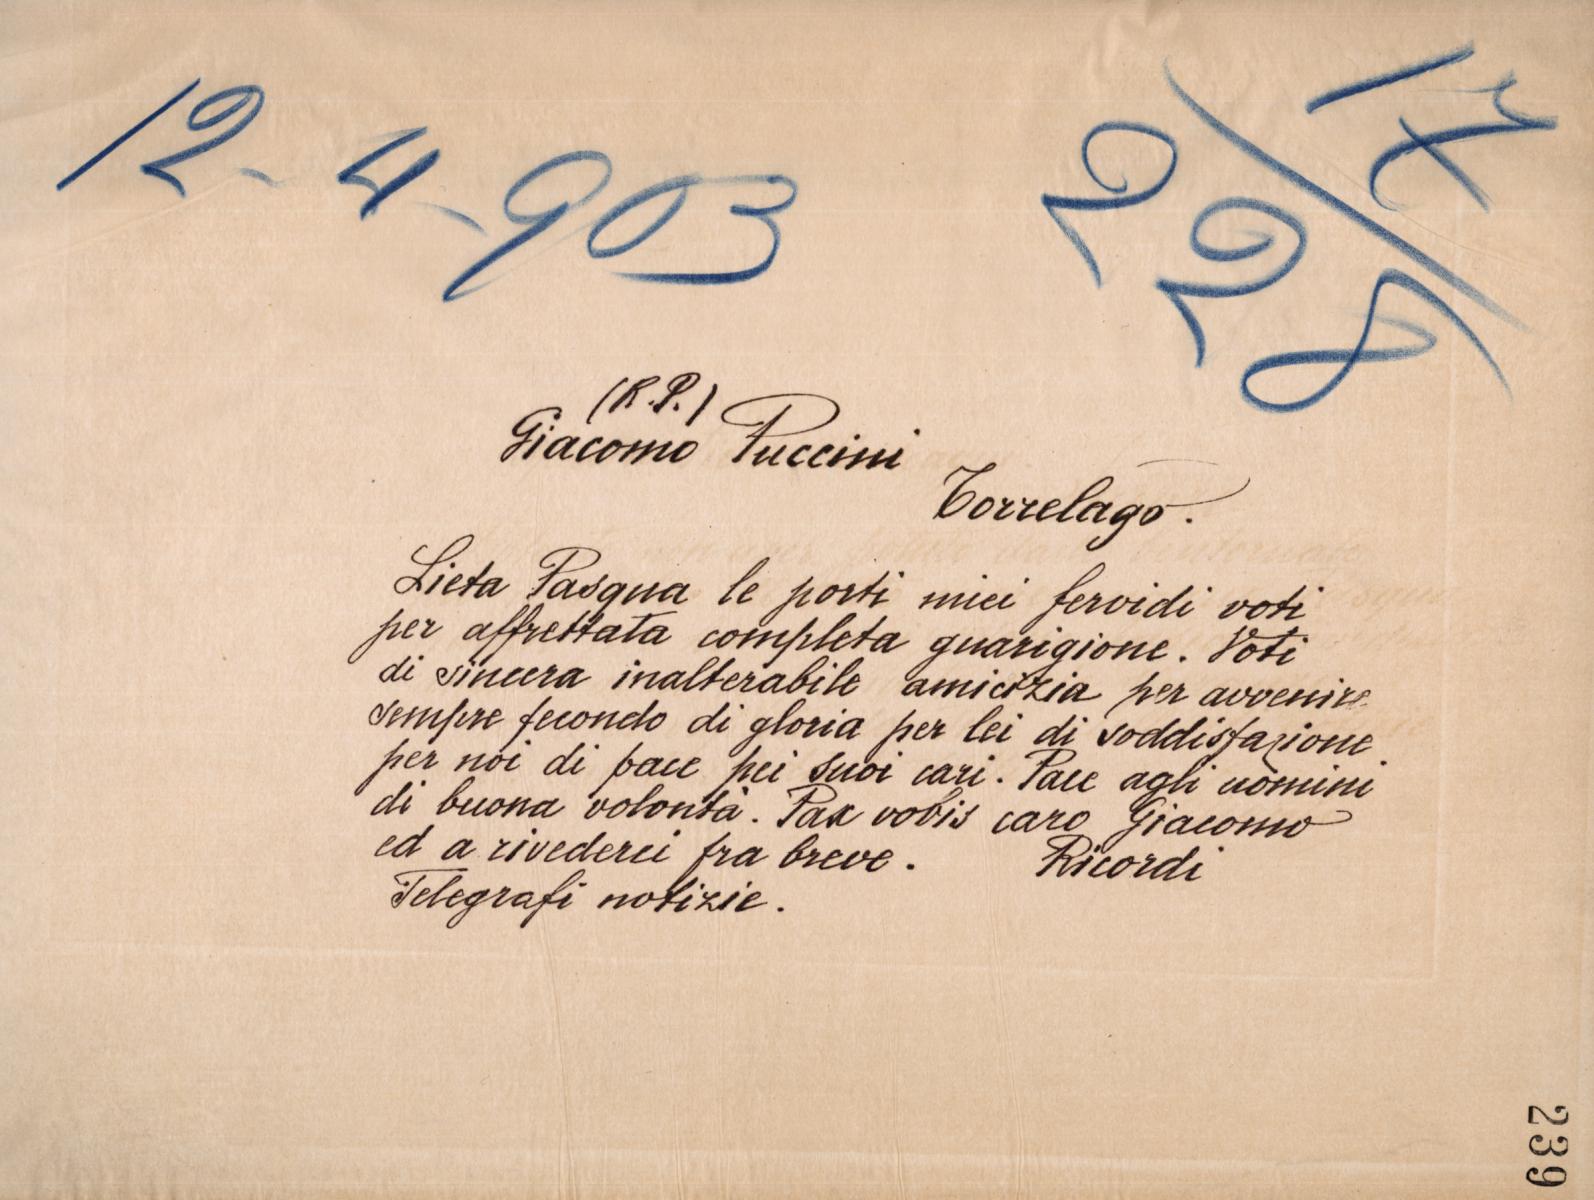 12-4-903
17/228
(R.P.)
Giacomo Puccini
Torrelago.
Lieta Pasqua le porti miei fervidi voti
per affrettata completa guarigione. Voti
di sincera inalterabile amicizia per avvenire
sempre fecondo di gloria per lei di soddisfazione
per noi di pace pei suoi cari. Pace agli uomini
di buona volontà. Pax vobis caro Giacomo
ed a rivederci fra breve. Ricordi
Telegrafi notizie.
239